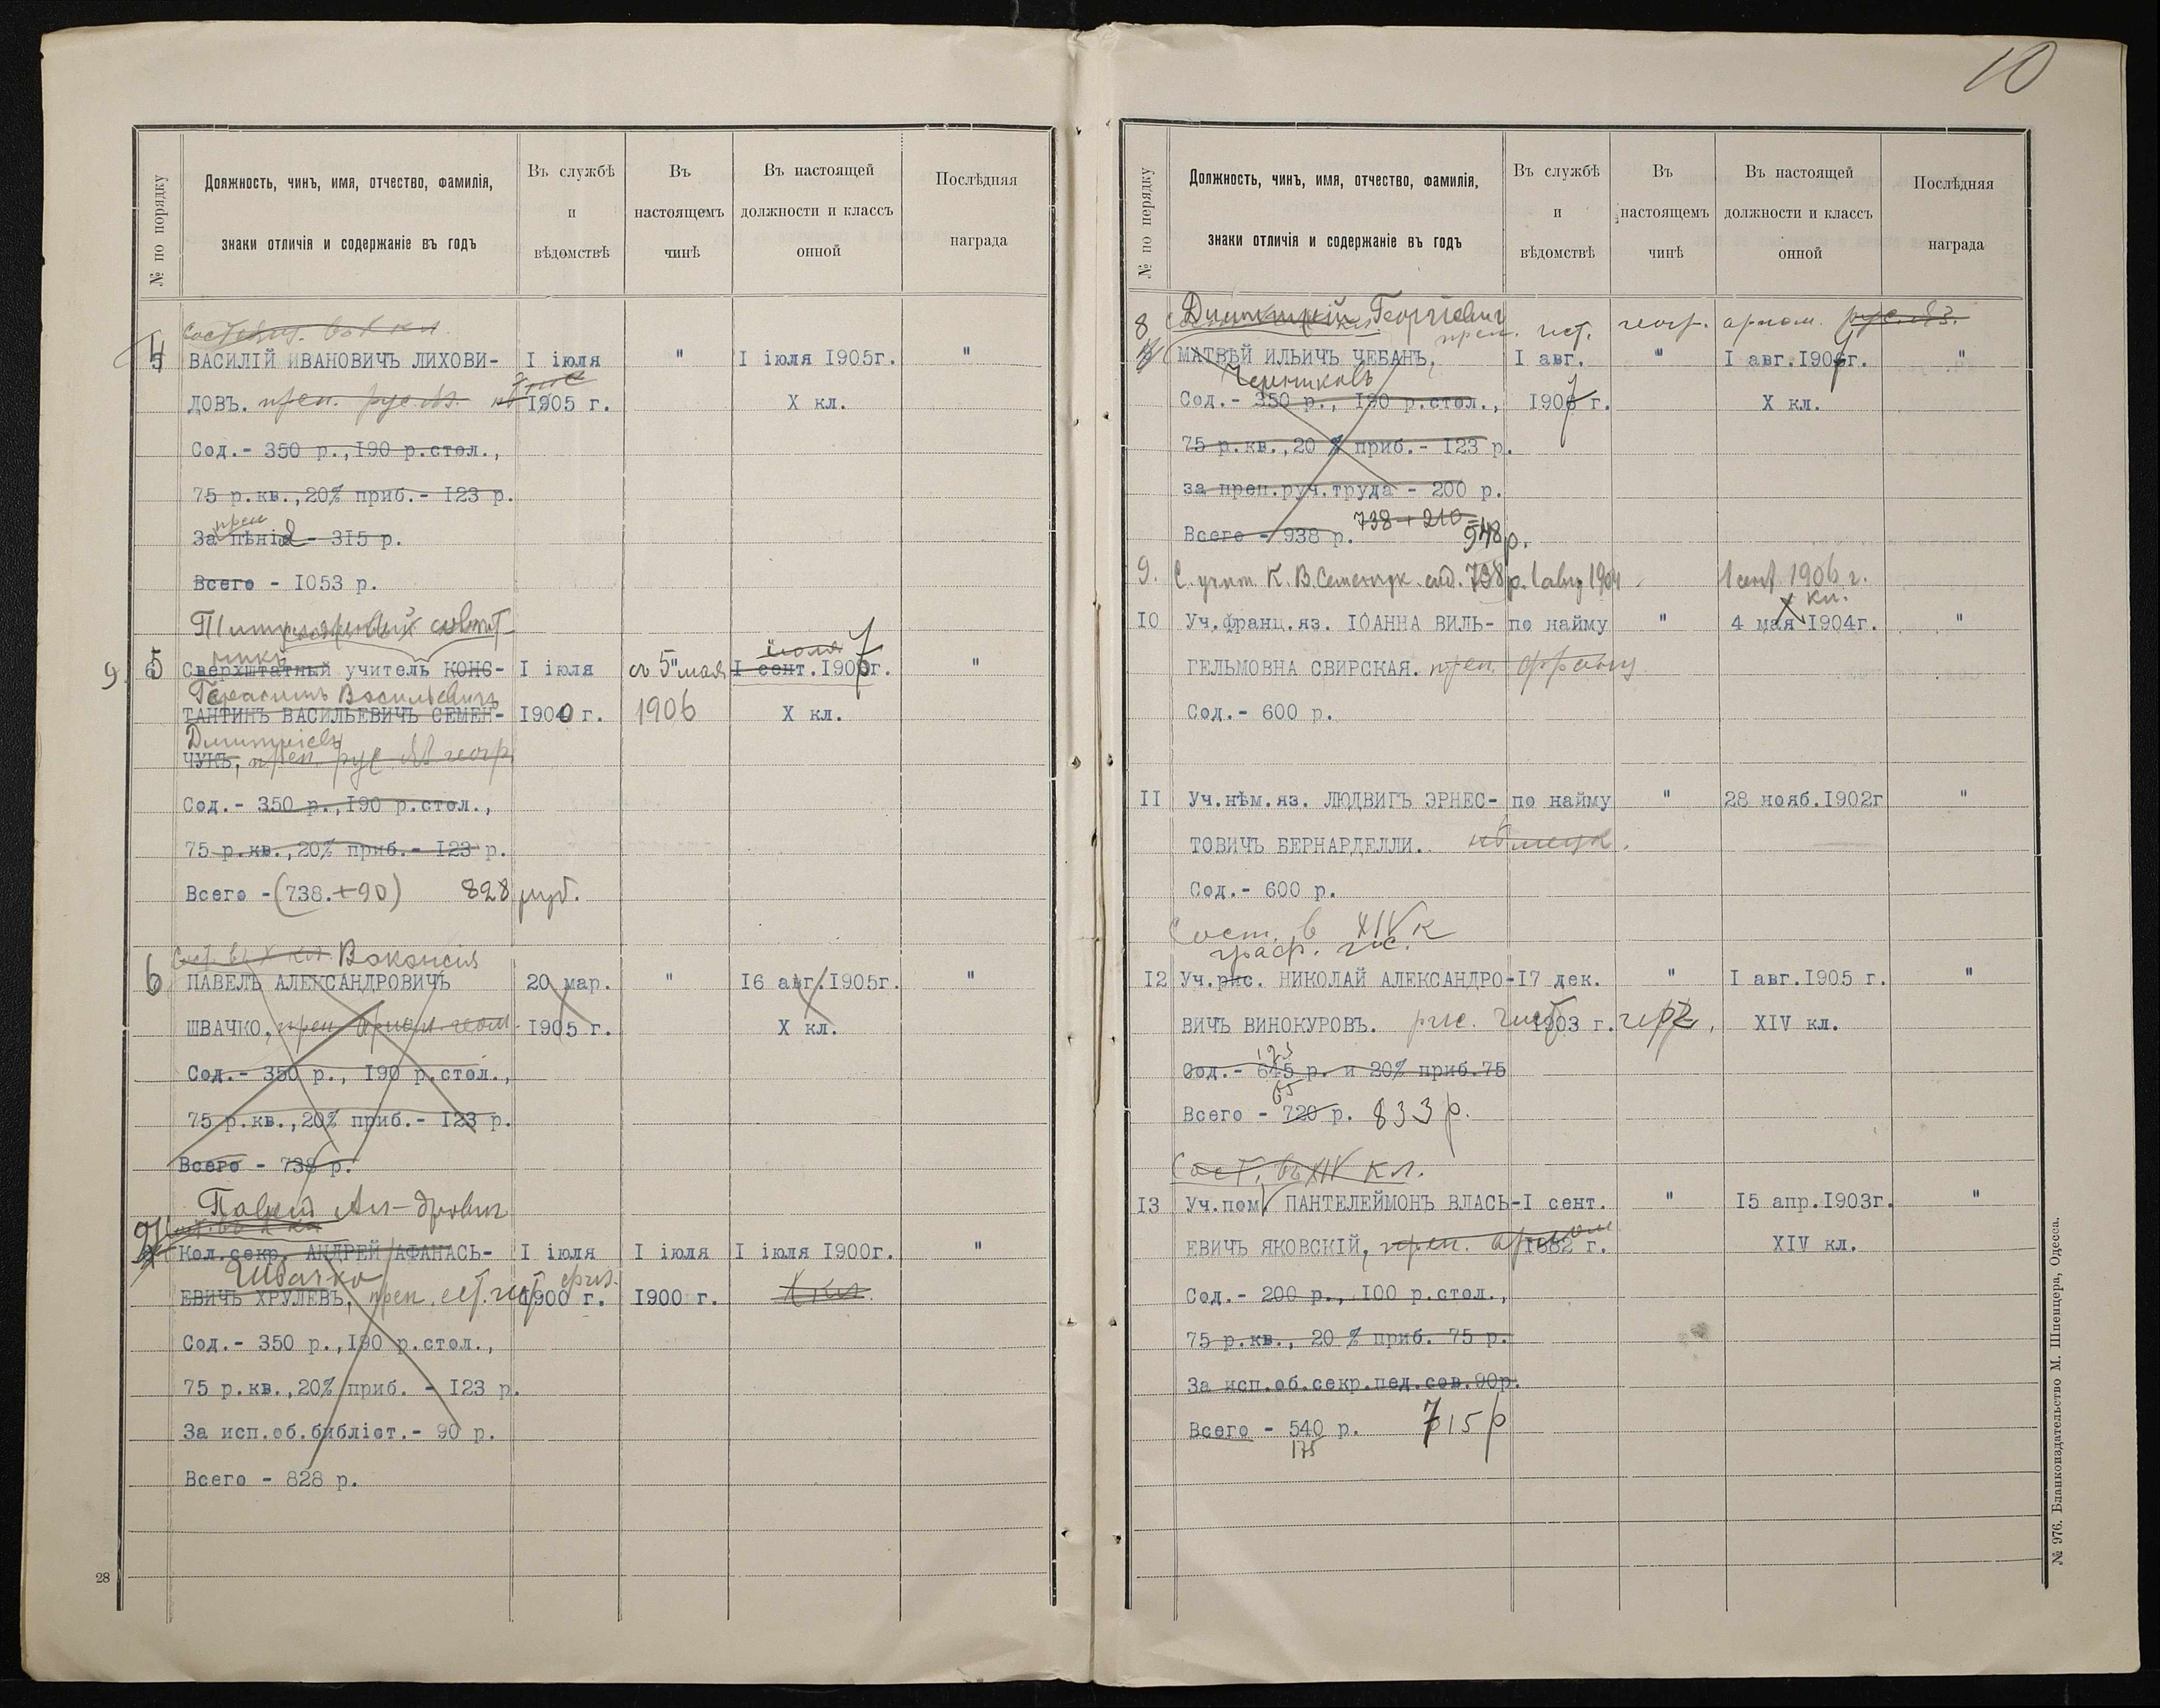 10
№ по порядку
Должность, чинъ, имя, отчество, фамилія,
знаки отличія и содержаніе въ годъ
Въ службѣ
и
вѣдомствѣ
Въ
настоящемъ
чинѣ
Въ настоящей
должности и классъ
онной
Послѣдняя
награда
4 ВАСИЛІЙ ИВАНОВИЧЪ ЛИХОВИ- I іюля " I іюля 1905г. "
ДОВЪ. преп. 1905 г. X кл.
Сод.- 350 р.,190 р.стол.,
75 р.кв.,20% приб.- 123 р.
За пѣнія - 315 р.
Всего - 1053 р.
9 5 Сверхштатный учитель КОНС- I іюля съ 5 мая I сент.1907г. "
іюля
Герасимъ Васильевичъ
ТАНТИНЪ ВАСИЛЬЕВИЧЪ СЕМЕН- 1900 г. 1906 X кл.
Дмитріевъ
ЧУКЪ, преп. рус. яз. геогр.
Сод.- 350 р.,190 р.стол.,
75 р.кв.,20% приб.- 123 р.
Всего -(738.+90) 828 руб.
Сост. въ X кл. Вакансія
6 ПАВЕЛЪ АЛЕКСАНДРОВИЧЪ 20 мар. " 16 авг.1905г. "
ШВАЧКО, преп. 1905 г. X кл.
Сод.- 350 р., 190 р.стол.,
75 р.кв.,20% приб.- 123 р.
Всего - 738 р.
Павелъ Ал-дрович
Кол.секр. АНДРЕЙ АФАНАСЬ- I іюля I іюля I іюля 1900г. "
Швачко
ЕВИЧЪ ХРУЛЕВЪ, преп. ест. ист. физ. 1900 г. 1900 г. X кл.
Сод.- 350 р.,190 р.стол.,
75 р.кв.,20% приб. - 123 р.
За исп.об.библіот.- 90 р.
Всего - 828 р.
28
№ по перядку
Должность, чинъ, имя, отчество, фамилія,
знаки отличія и содержаніе въ годъ
Въ службѣ
и
вѣдомствѣ
Въ
настоящемъ
чинѣ
Въ настоящей
должности и классъ
онной
Послѣдняя
награда
Георгіевич
преп. ист. геогр. арифм. рус. яз.
8 МАТВѢЙ ИЛЬИЧЪ ЧЕБАНЪ, I авг. " I авг.190 г. "
Сод.- 350 р., 190 р.стол., 1907 г. X кл.
75 р.кв.,20 % приб.- 123 р.
за преп.руч.труда - 200 р.
738 + 210 =
Всего - 938 р. 948 р.
9. К. В. Семенчук 738 р. 1 авг 1904 1 сент 1906 г.
X кл.
10 Уч.франц.яз. IОАННА ВИЛЬ- по найму " 4 мая 1904г. "
ГЕЛЬМОВНА СВИРСКАЯ. преп. франц
Сод.- 600 р.
11 Уч.нѣм.яз. ЛЮДВИГЪ ЭРНЕС- по найму " 28 нояб.1902г "
ТОВИЧЪ БЕРНАРДЕЛЛИ. нѣмецк.
Сод.- 600 р.
Сост. в XIV к
граф. ис.
12 Уч.рис. НИКОЛАЙ АЛЕКСАНДРО- 17 дек. " I авг.1905 г. "
ВИЧЪ ВИНОКУРОВЪ. рис. чист 1903 г. черч, XIV кл.
123
Сод.- 645 р. и 20% приб.75
65
Всего - 720 р. 833 р.
Сост. въ XIV кл.
13 Уч.пом. ПАНТЕЛЕЙМОНЪ ВЛАСЬ- I сент. " 15 апр.1903г. "
ЕВИЧЪ ЯКОВСКІЙ, преп. 1882 г. XIV кл.
Сод.- 200 р., 100 р.стол.,
75 р.кв., 20 % приб. 75 р.
За исп.об.секр.пед.сов.90р.
Всего - 540 р. 715 р
175
№ 976. Бланкоиздательство М. Шпенцера, Одесса.